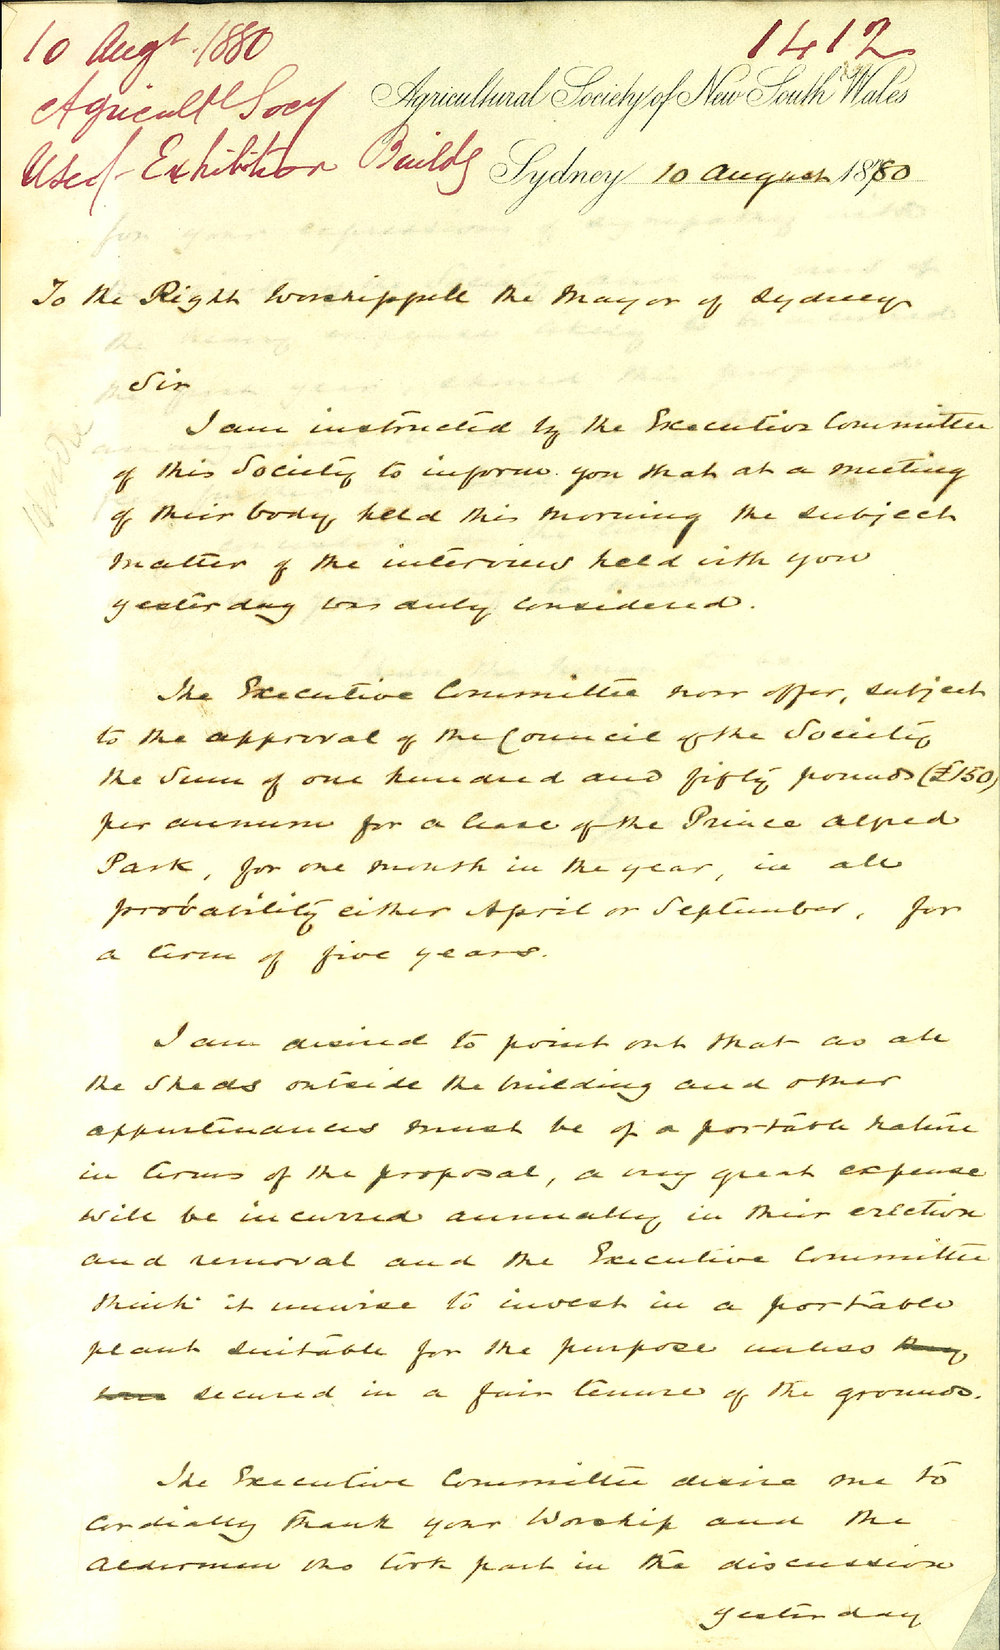 10 Augt. 1880
1412
Agricultl Socy
Agricultural Society of New South Wales
Use of Exhibition Buildg
Sydney 10 August 1880
To the Right Worshippful the Mayor of Sydney
Sir
I am instructed by the Executive Committee
of this Society to inform you that at a meeting
of their body held this morning the subject
matter of the interview held with you
yesterday was duly considered.
The Executive Committee now offer, subject
to the approval of the Council of the Society
the Sum of one hundred and fifty pounds (£150)
per annum for a lease of the Prince Alfred
Park, for one month in the year, in all
probability either April or September, for
a term of five years.
I am desired to point out that as all
the Sheds outside the building and other
appurtenances must be of a portable nature
in terms of the proposal, a very great expense
will be incurred annually in their erection
and removal and the Executive Committee
think it unwise to invest in a portable
plant suitable for the purpose unless they
secured in a fair tenure of the grounds.
The Executive Committee desire me to
cordially thank your Worship and the
Aldermen who took part in the discussion
yesterday